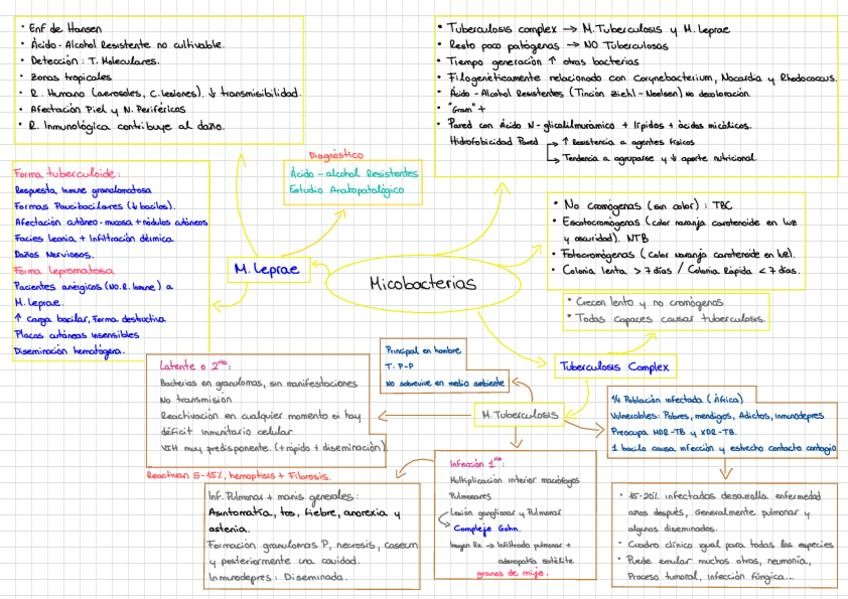 • Enf de Hansen
• Ácido-Alcohol Resistente no cultivable.
• Detección: T. Moleculares.
• Zonas tropicales
• R. Humano (aerosoles, C. lesiones). ↓ transmisibilidad.
• Afectación Piel y N. Periféricos
• R. Inmunológica contribuye al daño.
• Tuberculosis complex → M. Tuberculosis y M. Leprae
• Resto poco patógenas → NO Tuberculosas
• Tiempo generación ↑ otras bacterias
• Filogenéticamente relacionado con Corynebacterium, Nocardia y Rhodococcus.
• Ácido-Alcohol Resistentes (Tinción Ziehl-Neelsen) no decoloración.
• "Gram" +
• Pared con Ácido N-glicolilmurámico + lípidos + ácidos micólicos.
Hidrofobicidad Pared → ↑ Resistencia a agentes físicos
→ Tendencia a agruparse y ↓ aporte nutricional.
Diagnóstico
Ácido-alcohol Resistentes
Estudio Anatopatológico
Forma tuberculoide:
Respuesta Inmune granulomatosa
Formas Paucibacilares (↓ bacilos).
Afectación cutáneo-mucosa + nódulos cutáneos
Facies leonia + Infiltración dérmica.
Daños Nerviosos.
Forma lepromatosa
Pacientes anérgicos (NO. R. Inmune) a
M. Leprae.
↑ Carga bacilar, Forma destructiva
Placas cutáneas insensibles
Diseminación hematógena.
M. Leprae
Micobacterias
• No cromógenas (sin color): TBC
• Escotocromógenas (color naranja carotenoide en luz
y oscuridad). NTB
• Fotocromógenas (Color naranja carotenoide en luz).
• Colonia lenta > 7 días / Colonia Rápida < 7 días.
• Crecen lento y no cromógenas
• Todas capaces causar tuberculosis.
Tuberculosis Complex
Principal en hombre.
T. P-P
No sobrevive en medio ambiente
M. Tuberculosis
Latente o 2ria:
Bacterias en granulomas, sin manifestaciones
No transmisión
Reactivación en cualquier momento si hay
déficit inmunitario celular
VIH muy predisponente (+ rápido + diseminación)
Reactivan 5-15%, hemoptisis + Fibrosis.
1/4 Población infectada (África)
Vulnerables: Pobres, mendigos, Adictos, inmunodepres
Preocupa MDR-TB y XDR-TB.
1 bacilo causa infección y estrecho contacto contagio
Infección 1ria:
Multiplicación interior macrófagos
Pulmonares
Lesión ganglionar y Pulmonar
→ Complejo Gohn.
Imagen Rx → Infiltrado pulmonar +
adenopatía satélite
granos de mijo.
Inf. Pulmonar + manis generales:
Asintomatía, tos, fiebre, anorexia y
astenia.
Formación granulomas P, necrosis, caseum
y posteriormente una cavidad.
Inmunodepres: Diseminada.
• 15-20% infectados desarrolla enfermedad
años después, Generalmente pulmonar y
algunos diseminados.
• Cuadro clínico igual para todas las especies
• Puede emular muchos otros, neumonía,
Proceso tumoral, infección fúngica...